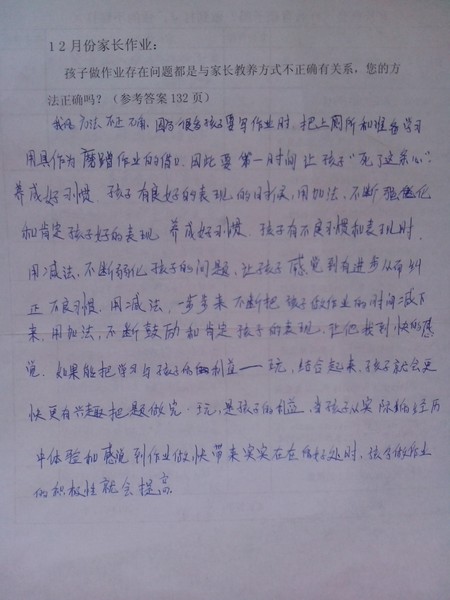 12月份家长作业：
孩子做作业存在问题都是与家长教养方式不正确有关系，您的方
法正确吗？（参考答案132页）
我的方法不正确，因为 孩子要写作业时，把上厕所和准备学习
用具作为磨蹭作业的借口。因此要第一时间让孩子“死了这条心”.
养成好习惯。孩子有良好的表现的时候，用加法，不断强化
和肯定孩子好的表现，养成好习惯。孩子有不良习惯和表现时，
用减法，不断弱化孩子的问题，让孩子感觉到有进步从而纠
正不良习惯。用减法，一步步来不断把孩子做作业的时间减下
来，用加法，不断鼓励和肯定孩子的表现，让他找到快的感
觉。如果能把学习与孩子的利益——玩，结合起来，孩子就会更
快更有兴趣把题做完。玩，是孩子的利益，当孩子从实际的经历
中体验和感觉到作业做快带来实实在在的好处时，孩子做作业
的积极性就会提高